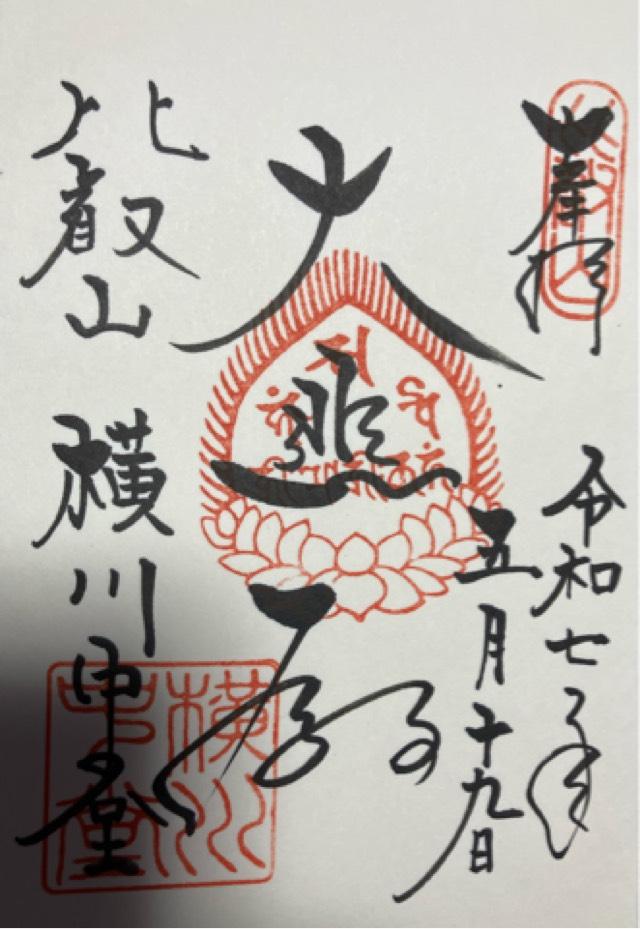 奉拝
令和七年
五月十九日
大悲殿
比叡山 横川中堂
横川中堂